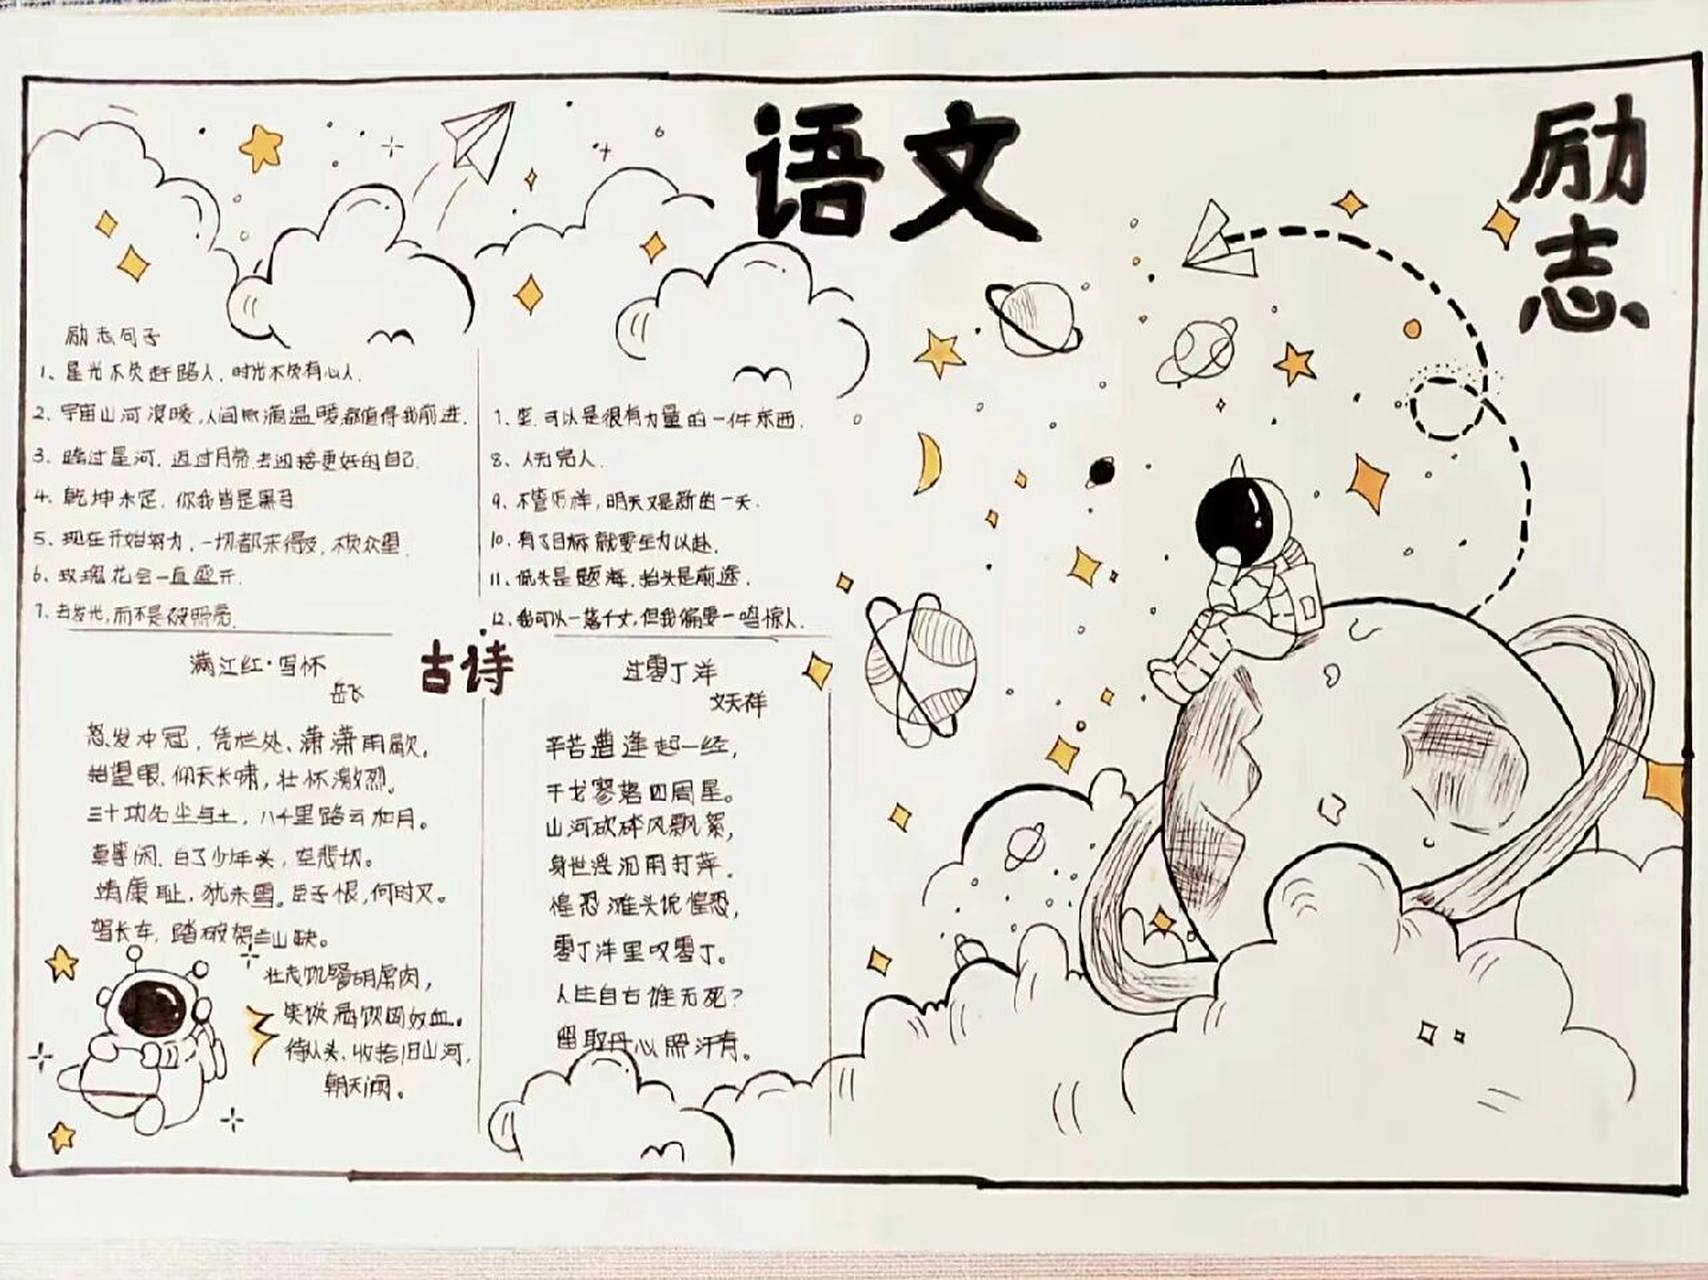 语文
励志
励志句子
1、星光不负赶路人,时光不负有心人.
2、宇宙山河浪漫,人间点滴温暖都值得我前进.
3、踏过星河,迈过月亮,去迎接更好的自己.
4、乾坤未定,你我皆是黑马
5、现在开始努力,一切都来得及,不负众望.
6、玫瑰花会一直盛开.
7、去发光,而不是被照亮.
7、爱可以是很有力量的一件东西.
8、人无完人.
9、不管怎样,明天又是新的一天.
10、有了目标就要全力以赴.
11、低头是题海,抬头是前途.
12、我可以一落千丈,但我偏要一鸣惊人.
古诗
满江红·写怀
岳飞
怒发冲冠,凭栏处、潇潇雨歇。
抬望眼,仰天长啸,壮怀激烈。
三十功名尘与土,八千里路云和月。
莫等闲、白了少年头,空悲切。
靖康耻,犹未雪。臣子恨,何时灭。
驾长车,踏破贺兰山缺。
壮志饥餐胡虏肉,
笑谈渴饮匈奴血。
待从头、收拾旧山河,
朝天阙。
过零丁洋
文天祥
辛苦遭逢起一经,
干戈寥落四周星。
山河破碎风飘絮,
身世浮沉雨打萍.
惶恐滩头说惶恐,
零丁洋里叹零丁。
人生自古谁无死?
留取丹心照汗青。